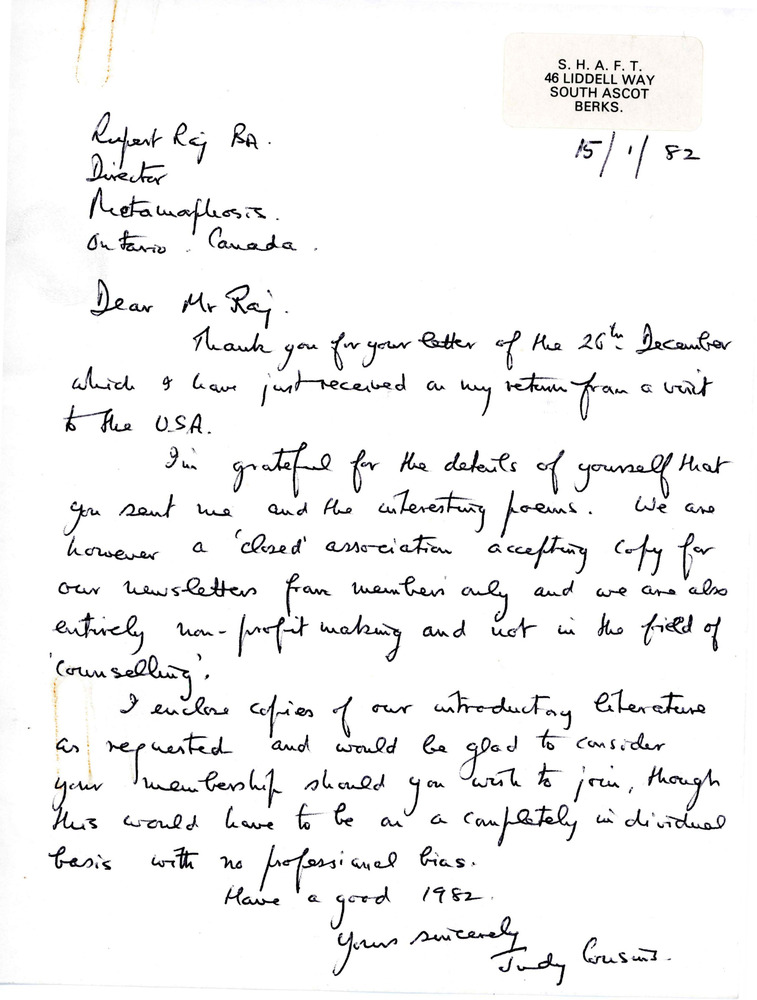 S. H. A. F. T.
46 LIDDELL WAY
SOUTH ASCOT
BERKS.
15/1/82
Rupert Raj BA.
Director
Metamaphosis.
Ontario. Canada.
Dear Mr Raj.
Thank you for your letter of the 26th December
which I have just received on my return from a visit
to the U.S.A.
I'm grateful for the details of yourself that
you sent me and the interesting poems. We are
however a 'closed' association accepting copy for
our newsletters from members only and we are also
entirely non-profit making and not in the field of
'counselling'.
I enclose copies of our introductory literature
as requested and would be glad to consider
your membership should you wish to join, though
this would have to be on a completely individual
basis with no professional bias.
Have a good 1982.
Yours sincerely
Judy Cousins.